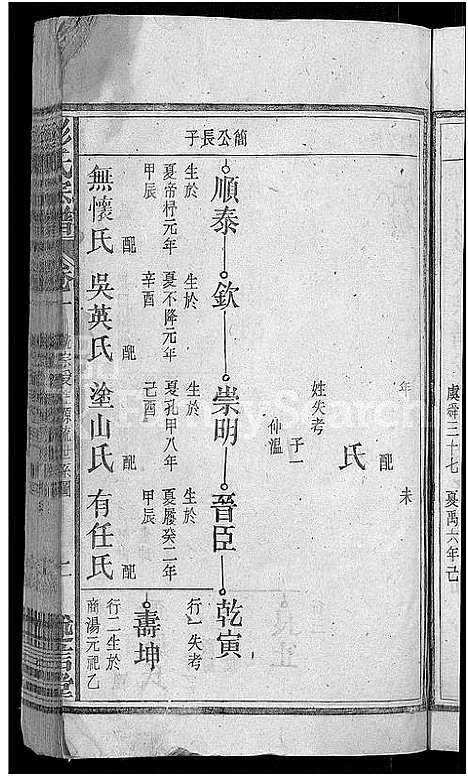 虞舜三十七 夏禹六年己
年 未
配
氏
姓失考
子一
仲溫
簡公長子
順泰 欽 崇明 晉臣 乾寅
生於夏帝杼元年甲辰
配無懷氏
生於夏不降元年辛酉
配吳英氏
生於夏孔甲八年己酉
配塗山氏
生於夏履癸二年甲辰
配有任氏
行一失考
壽坤
行二生於
商湯元祀乙
彭氏宗譜